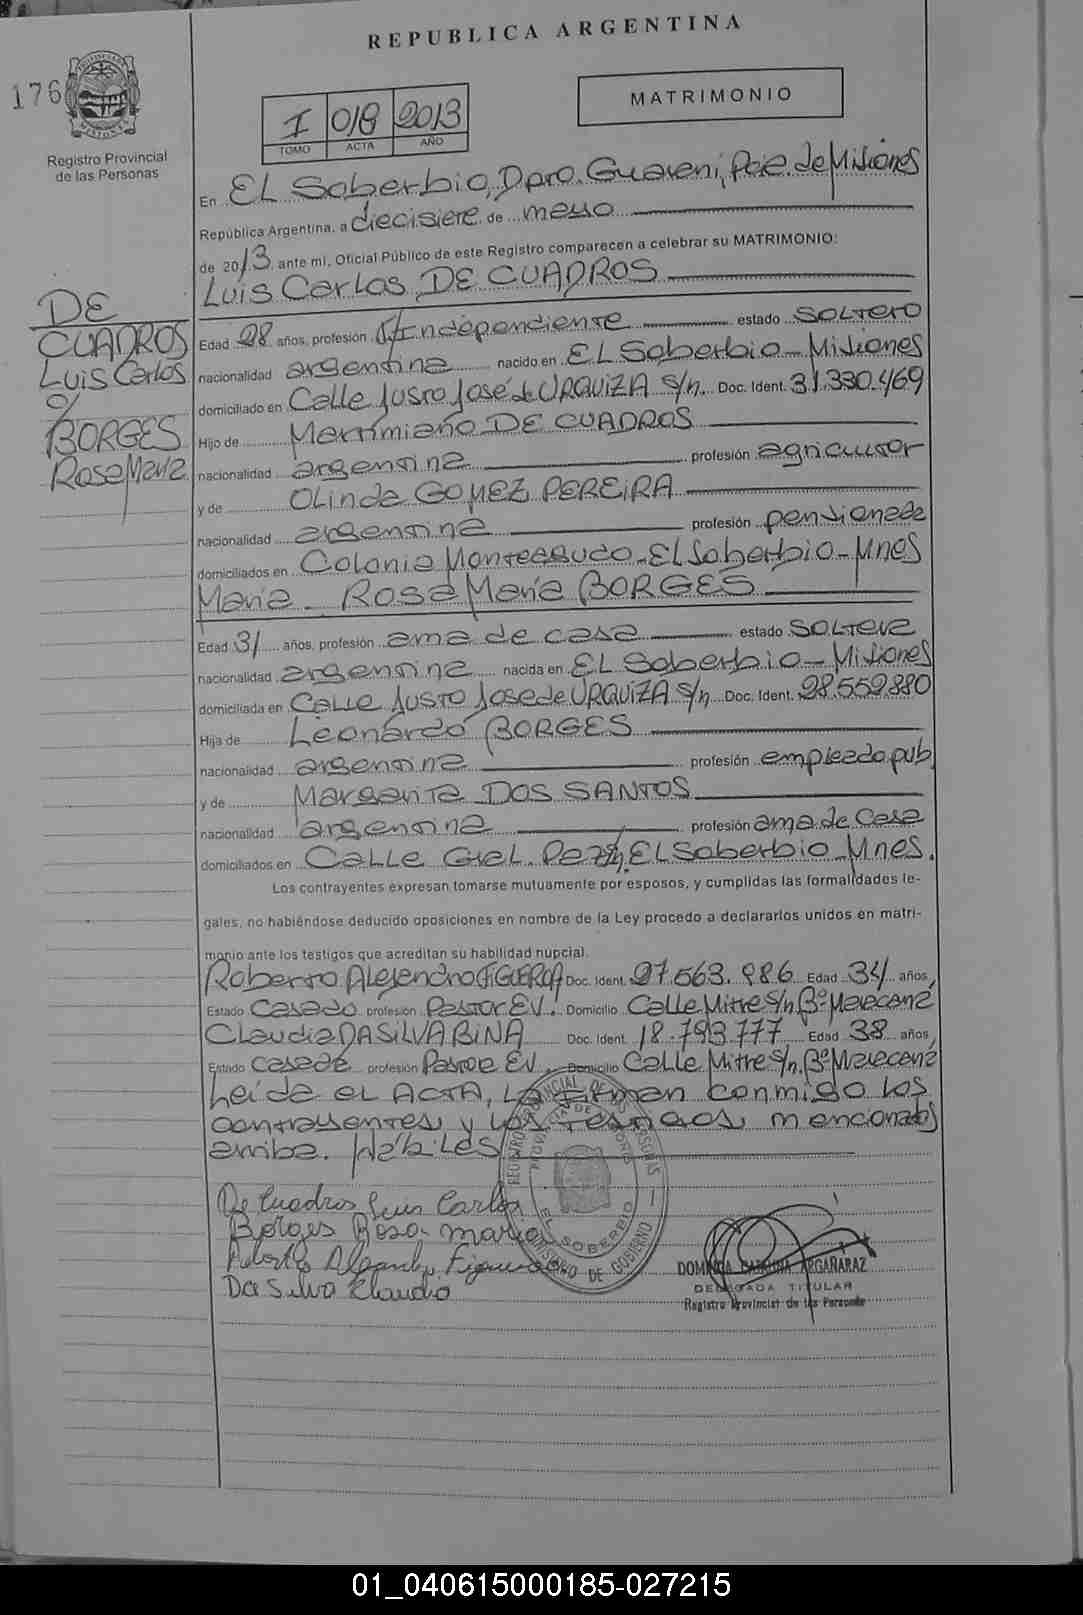 REPUBLICA ARGENTINA
176
Registro Provincial
de las Personas
I 018 2013
TOMO ACTA AÑO
MATRIMONIO
En EL Soberbio, Dpto. Guarani, Pcia. de Misiones
República Argentina, a diecisiete de mayo
de 2013 ante mí, Oficial Público de este Registro comparecen a celebrar su MATRIMONIO:
Luis Carlos DE CUADROS
DE
CUADROS
Luis Carlos
c/
BORGES
Rosa María
Edad 28 años, profesión Independiente estado SOLTERO
nacionalidad argentina nacido en EL Soberbio - Misiones
domiciliado en Calle Justo José de URQUIZA s/n. Doc. Ident. 31.330.469
Hijo de Maximiano DE CUADROS
nacionalidad argentina profesión agricultor
y de OLinda GOMEZ PEREIRA
nacionalidad argentina profesión pensionada
domiciliados en Colonia Monteagudo - EL Soberbio - Mnes
María Rosa María BORGES
Edad 31 años, profesión ama de casa estado SOLTERA
nacionalidad argentina nacida en EL Soberbio - Misiones
domiciliada en Calle Justo José de URQUIZA s/n Doc. Ident. 28.559.880
Hija de Leonardo BORGES
nacionalidad argentina profesión empleado pub
y de Margarita DOS SANTOS
nacionalidad argentina profesión ama de casa
domiciliados en CALLE Gral. Paz s/n, EL Soberbio - Mnes.
Los contrayentes expresan tomarse mutuamente por esposos, y cumplidas las formalidades le-
gales, no habiéndose deducido oposiciones en nombre de la Ley procedo a declararlos unidos en matri-
monio ante los testigos que acreditan su habilidad nupcial.
Roberto Alejandro FIGUEROA Doc. Ident. 27.563.986 Edad 34 años,
Estado Casado profesión Pastor EV. Domicilio Calle Mitre s/n Bº Maracaná
Claudia DA SILVA BINA Doc. Ident. 18.793.777 Edad 38 años,
Estado Casada profesión Pastor EV. Domicilio Calle Mitre s/n. Bº Maracaná
Leída el ACTA, La firman conmigo los
contrayentes y los testigos mencionados
arriba. Hábiles
De Cuadros Luis Carlos
Borges Rosa maria
Roberto Alejandro Figueroa
Da Silva Claudia
REGISTRO PROVINCIAL DE LAS PERSONAS
PROVINCIA DE MISIONES
EL SOBERBIO
MINISTERIO DE GOBIERNO
DOMINGA CAROLINA ARGAÑARAZ
DELEGADA TITULAR
Registro Provincial de las Personas
01_040615000185-027215